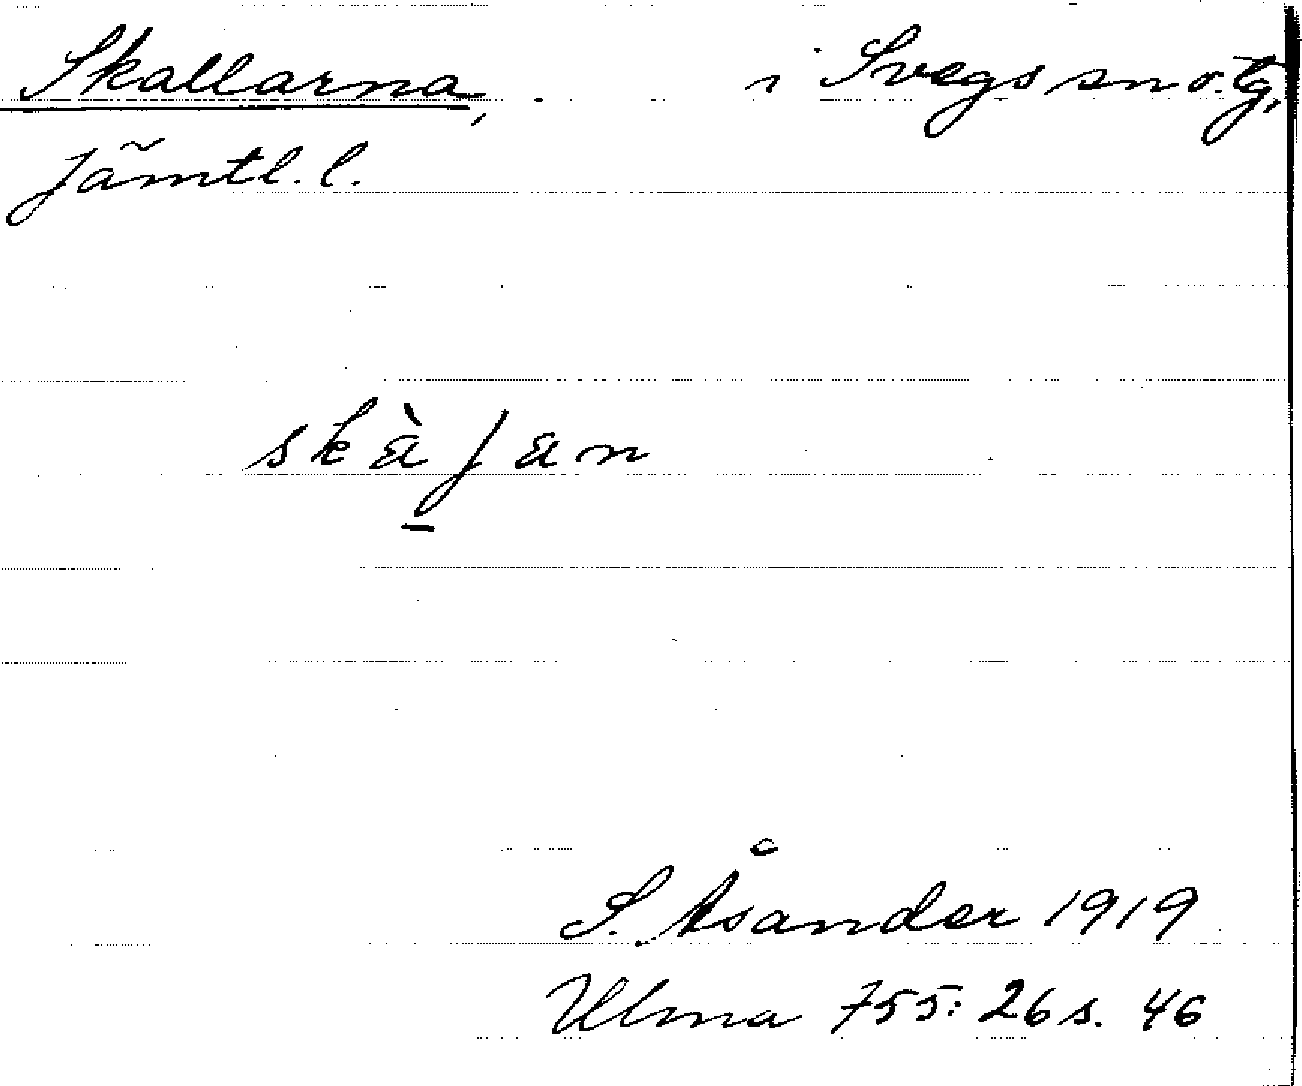 Skallarna, i Svegs sn o. tg,
Jämtl. l.
skàʃan
S. Åsander 1919
Ulma 755:26 s. 46